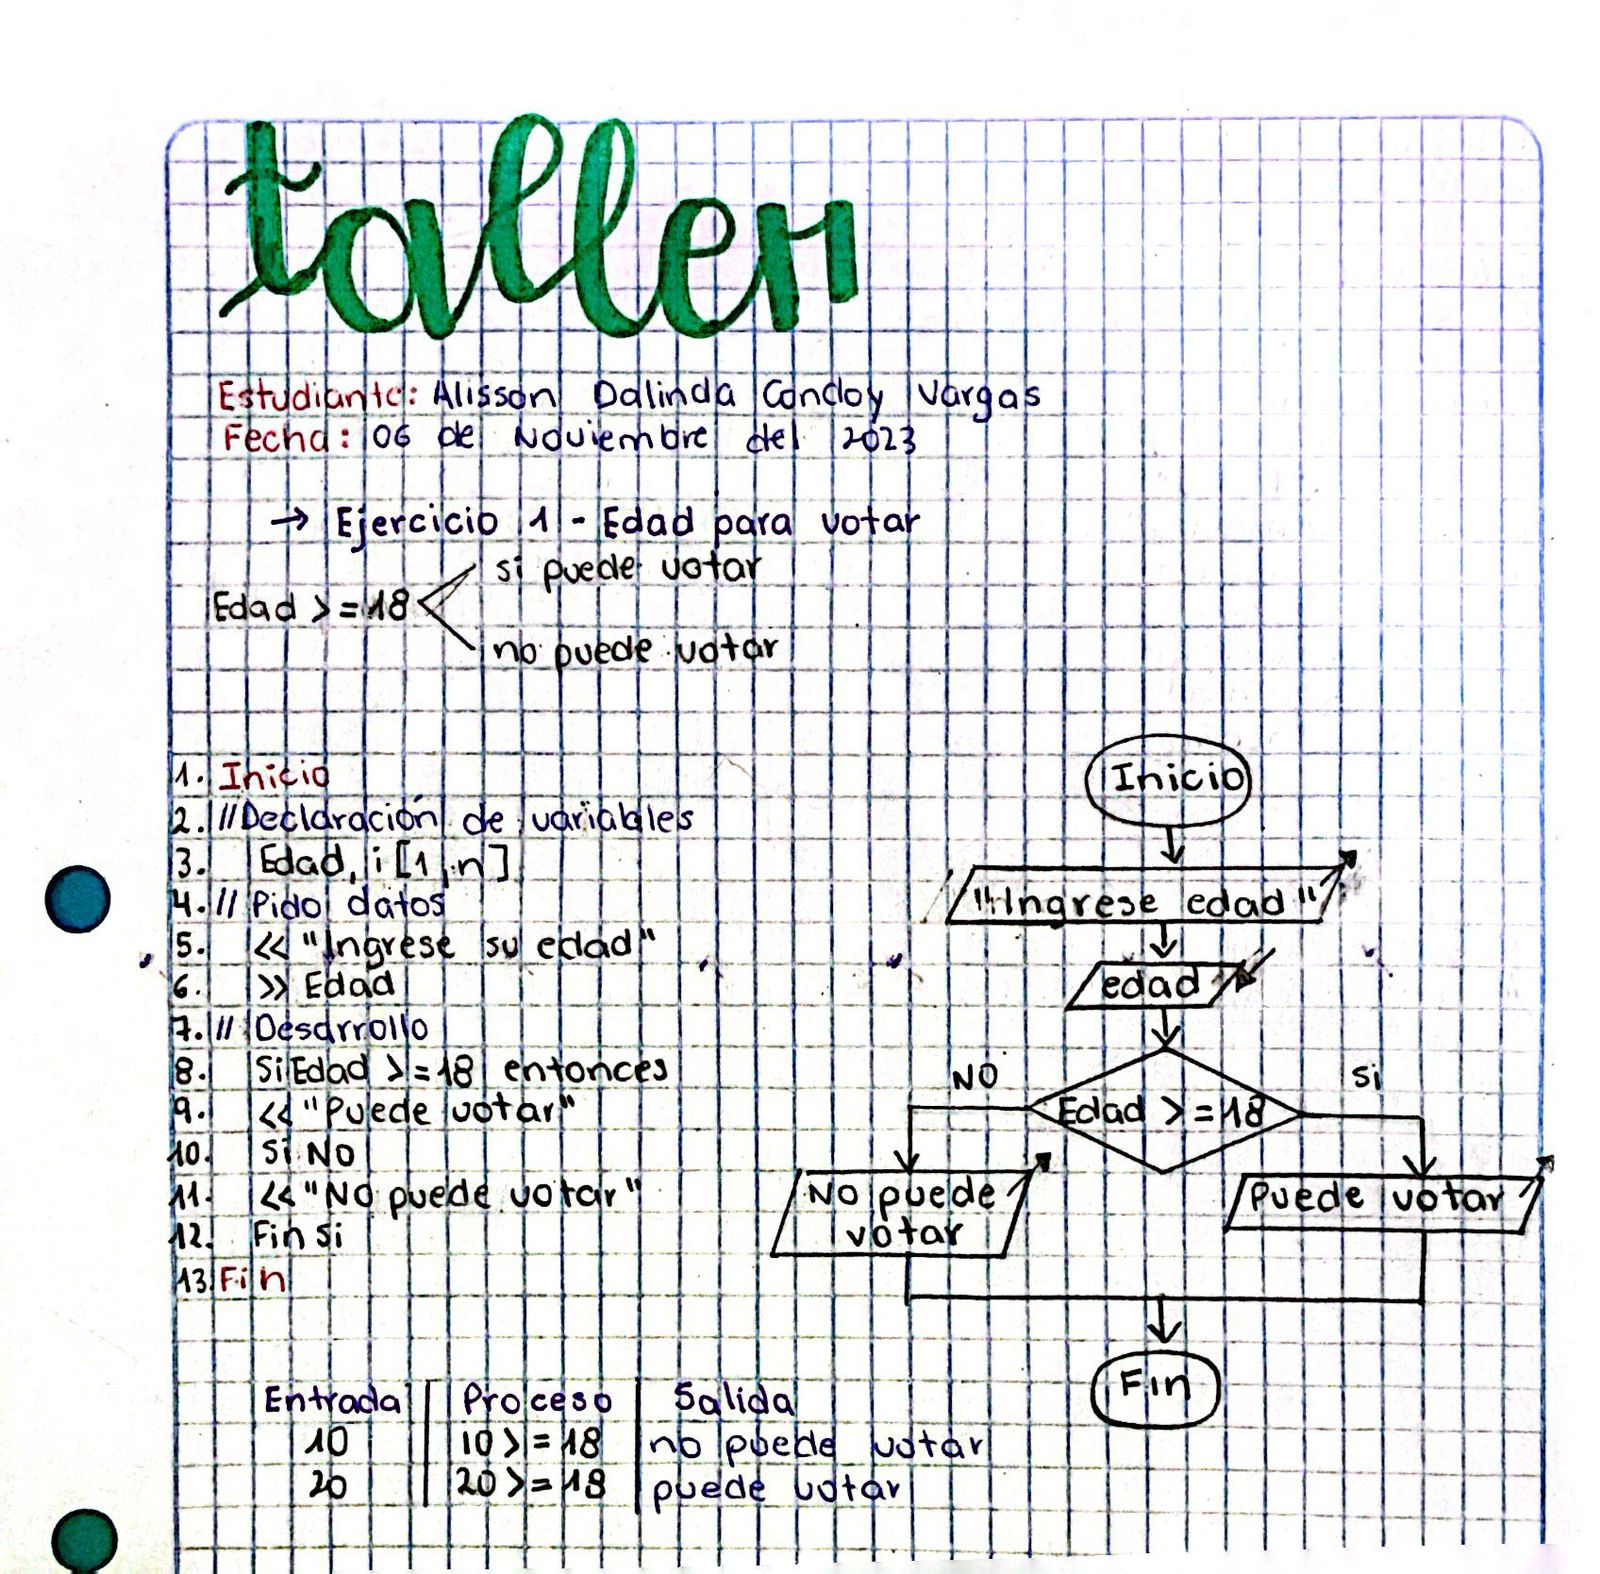 taller
Estudiante: Alisson Dalinda Condoy Vargas
Fecha: 06 de Noviembre del 2023
→ Ejercicio 1 - Edad para votar
si puede votar
Edad >=18
no puede votar
1. Inicio
2. //Declaración de variables
3. Edad, i [1,n]
4. // Pido datos
5. << "Ingrese su edad"
6. >> Edad
7. // Desarrollo
8. Si Edad >=18 entonces
9. << "Puede votar"
10. Si NO
11. << "No puede votar"
12. Fin si
13. Fin
Inicio
"Ingrese edad"
edad
NO
Si
Edad >=18
No puede
votar
Puede votar
Fin
Entrada Proceso Salida
10 10 >=18 no puede votar
20 20 >=18 puede votar